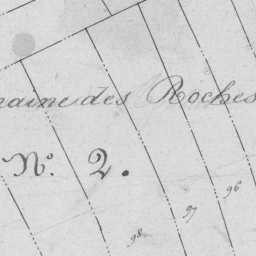 maine des Roches
N.º 2.
96
97
98